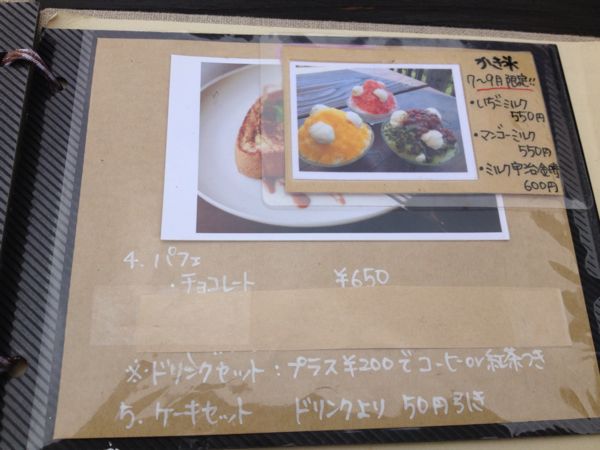 かき氷
7〜9月限定!!
・いちごミルク
550円
・マンゴーミルク
550円
・ミルク宇治金時
600円
4. パフェ
・チョコレート ¥650
※・ドリンクセット:プラス¥200でコーヒーor紅茶つき
5. ケーキセット ドリンクより 50円引き